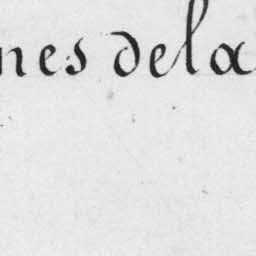 nes de la